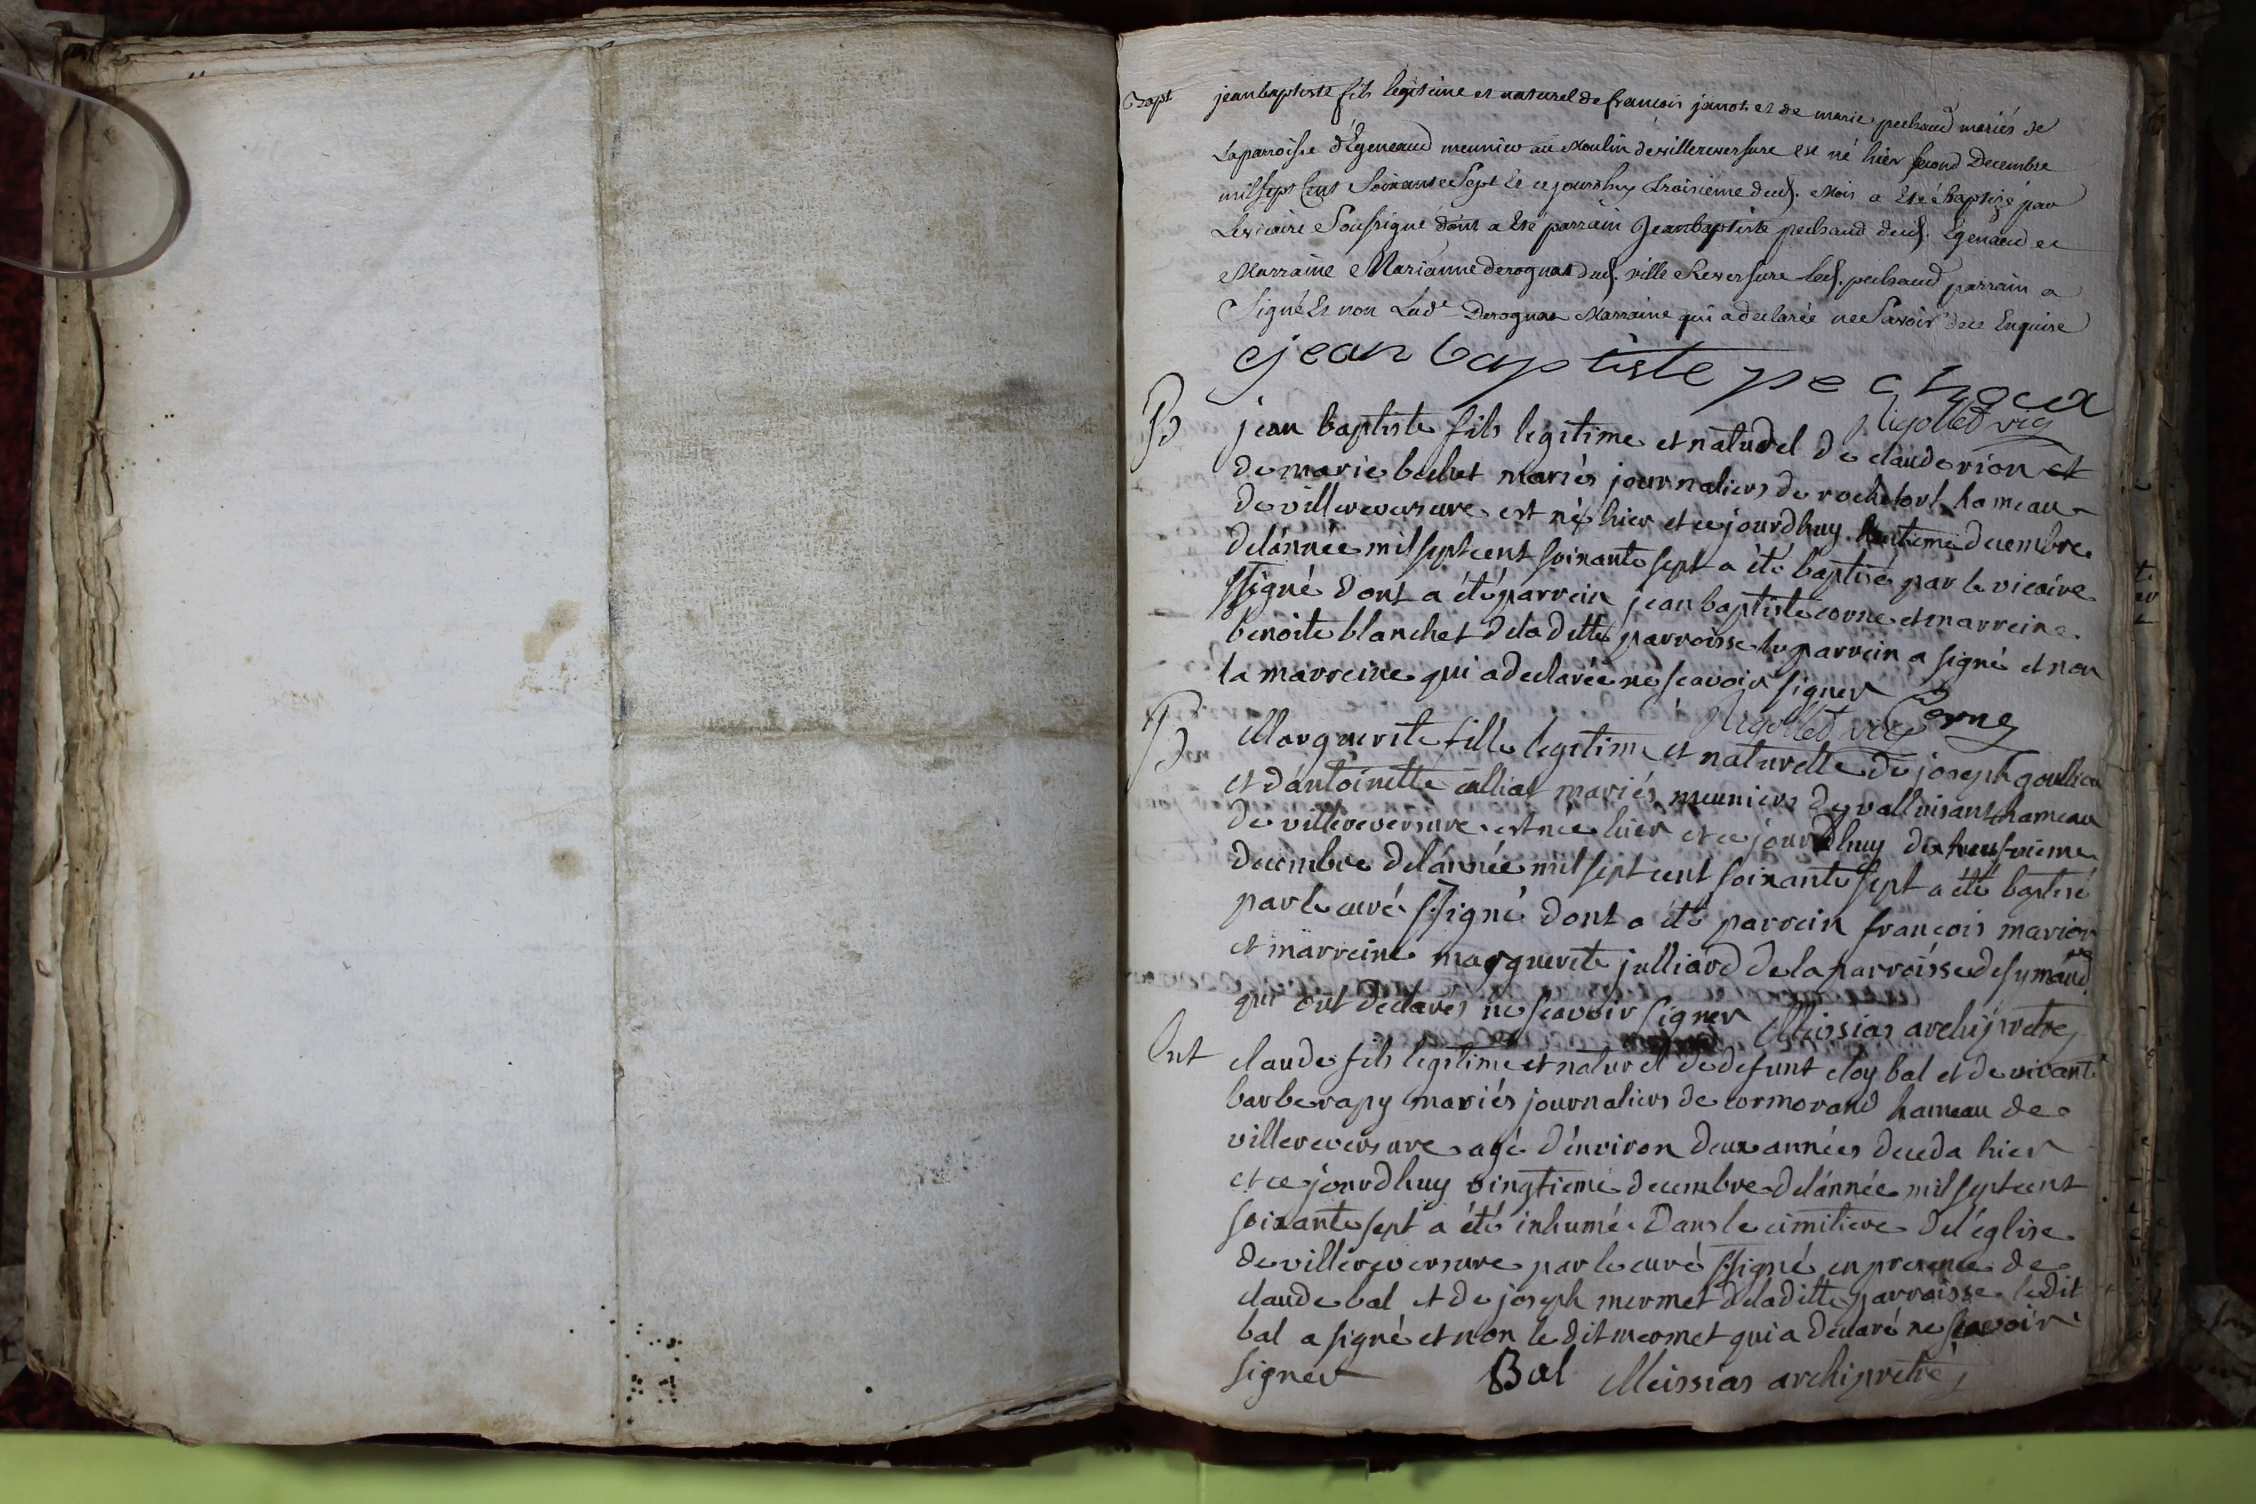 Bapt
jeanbaptiste fils legitime et naturel de francois janot et de marie pechaud mariés de
La parroisse d'Egeneaud meunier au Moulin de villereversure est né hier second Decembre
mil sept Cent Soixante Sept Et ce jourdhuy troisieme dud. Mois a Eté Baptizé par
Le vicaire Soussigné dont a Eté parrain Jeanbaptiste pechaud dud. Egenaud et
Marraine Marianne derognat dud. ville Reversure led. pechaud parrain a
Signé Et non Lade Derognat Marraine qui a declarée ne Savoir dece Enquise
jean baptiste pechaux
Rigollet vic
B
jean baptiste fils legitime et naturel de claude rion et
de marie bechet mariés journaliers de rochefort hameau
de villereversure est né hier et ce jourdhuy huitieme decembre
de lánnée mil sept cent soixante sept a été baptisé par le vicaire
ssigné dont a été parrein jean baptiste corne et marreine
benoite blanchet de la ditte parroisse le parrein a signé et non
la marreine qui a declarée ne scavoir signer
Corne
Rigollet vic
B
Marguerite fille legitime et naturelle de joseph goullion
et dántoinette alliat mariés meuniers de valluisant hameau
de villereversure est née hier et ce jourdhuy dixneufvieme
decembre de lánnée mil sept cent soixante sept a été baptisé
par le curé ssigné dont a été parrein francois marion
et marreine marguerite julliard de la parroisse de symand
qui ont declarés ne scavoir signer Meissias archiprêtre
Ent
claude fils legitime et naturel de defunt eloy bal et de vivante
barbe rapy mariés journaliers de cormorand hameau de
villereversure agé dénviron deux années deceda hier
et ce jourdhuy vingtieme decembre de lánnée mil sept cent
soixante sept a été inhumé dans le cimitiere de léglise
de villereversure par le curé ssigné en presence de
claude bal et de joseph mermet de la ditte parroisse le dit
bal a signé et non le dit mermet qui a declaré ne scavoir
signer Bal Meissias archiprêtre